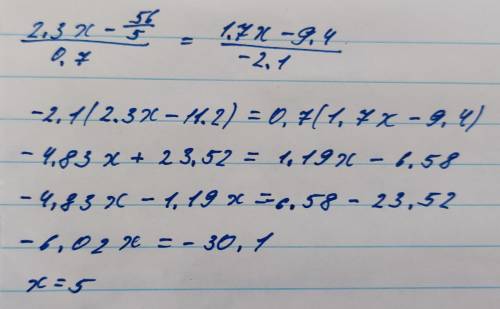 (2.3x - 56/5)/0,7 = (1.7x - 9,4)/-2.1
-2.1(2.3x - 11.2) = 0,7(1,7x - 9,4)
-4,83x + 23,52 = 1,19x - 6.58
-4,83x - 1,19x = -6.58 - 23,52
-6,02x = -30,1
x = 5